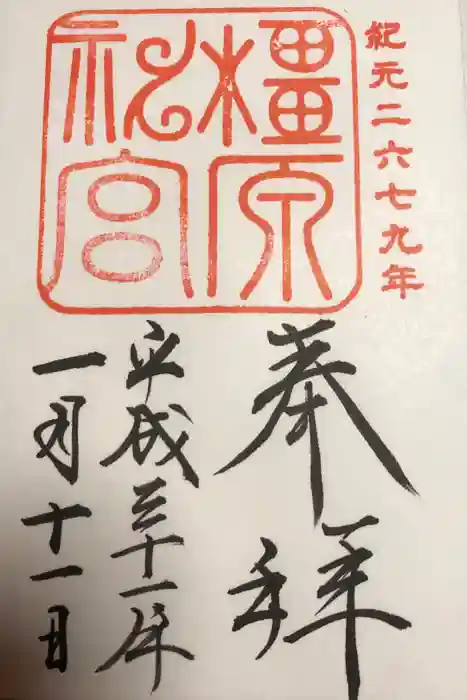 紀元二六七九年
橿原
神宮
奉拝
平成三十一年
一月十一日